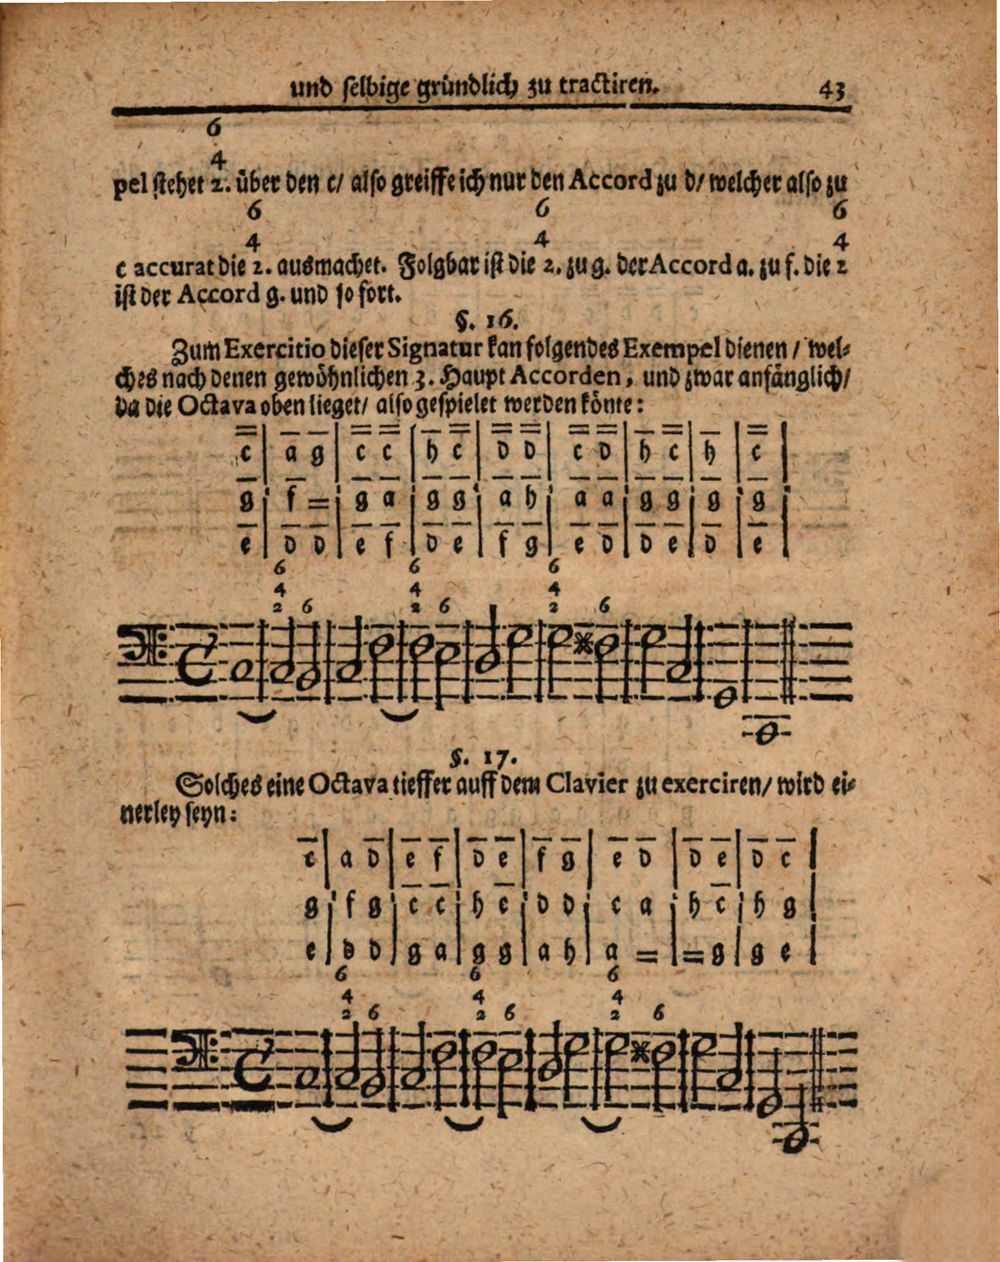 und selbige gründlich zu tractiren. 43
6
4
pel stehet 2. über den c/ also greiffe ich nur den Accord zu d/ welcher also zu
6 6 6
4 4 4
c accurat die 2. ausmachet. Folgbar ist die 2. zu g. der Accord a. zu f. die 2
ist der Accord g. und so fort.
§. 16.
Zum Exercitio dieser Signatur kan folgendes Exempel dienen / wel-
ches nach denen gewöhnlichen 3. Haupt Accorden, und zwar anfänglich/
da die Octava oben lieget/ also gespielet werden könte:
c | a g | c c | h c | d d | c d | h c | h | c |
g | f = | g a | g g | a h | a a | g g | g | g |
e | d d | e f | d e | f g | e d | d e | d | e |
6 6 6
4 4 4
2 6 2 6 2 6
§. 17.
Solches eine Octava tieffer auff dem Clavier zu exerciren/ wird ei-
nerley seyn:
c | a d | e f | d e | f g | e d | d e | d c |
g | f g | c c | h c | d d | c a | h c | h g |
e | d d | g a | g g | a h | a = | = g | g e |
6 6 6
4 4 4
2 6 2 6 2 6